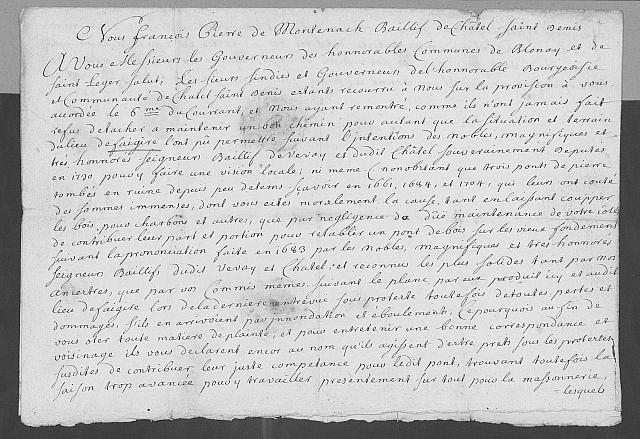 Nous François Pierre de Montenach Baillif de Châtel-Saint Denis
A Vous Messieurs les Gouverneurs des honnorables Communes de Blonay et de
saint Leger salut; Les sieurs sindics et Gouverneurs del'honorable Bourgeoisie
et Communauté de Chatel saint Denis estants recourru à Nous sur la provision à vous
accordée le 6me du Courrant, et Nous ayant remontré, comme ils n'ont jamais fait
refus de tacher a maintenir un bon chemin pour autant que la situation et terrain
du lieu de faigire l'ont pu permettre suivant l'intentions des nobles, magnifiques et
très honnorés seigneurs Baillifs de Vevay et dudit Châtel souverainement Deputés
en 1730 pour y faire une vision locale; ni meme (nonobstant que trois ponts de pierre
tombés en ruine depuis peu de tems scavoir en 1661, 1684, et 1704, qui leurs ont couté
des sommes immenses, dont vous estes moralement la cause, tant en laissant coupper
les bois, pour charbon et autres, que par negligence de maintenance de votre coté
de contribuer leur part et portion pour retablir un pont de bois sur les vieux fondement
suivant la prononciation faite en 1683 par les Nobles, magnifiques et tres honnorés
seigneurs Baillifs dudit Vevay et Chatel, et reconnus les plus solides tant par nos
ancertres, que par vos Commis mêmes, suivant le plan par eux produit icy et audit
lieu de faigire lors de la derniere entrevüe sous proteste toute fois de toutes pertes et
dommages, s'ils en arrivoient par innondation et eboulement; Cepourquoi au fin de
vous oter toute matiere de plainte, et pour entretenir une bonne correspondance et
voisinage ils vous declarent encor au nom qu'ils agissent d'ertre prets sous les protertes
susdites de contribuer leur juste competance pour ledit pont, trouvant toutefois la
saison trop avancée pour y travailler presentement sur tout pour la massonnerie,
lesquels